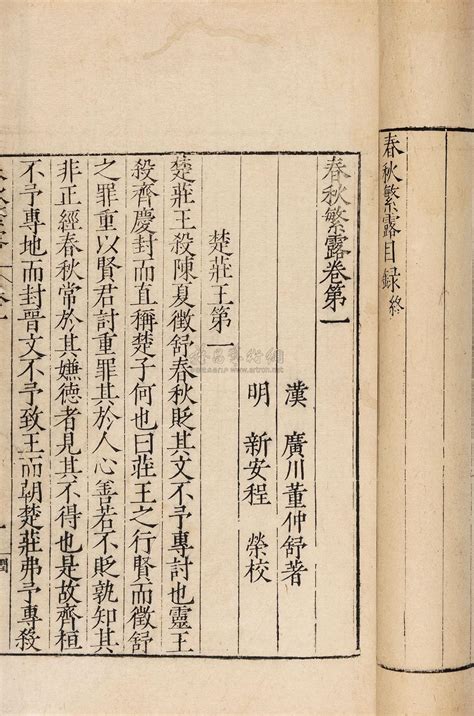 春秋繁露目録終
春秋繁露卷第一
漢 廣川董仲舒著
明 新安程 榮校
楚莊王第一
楚莊王殺陳夏徵舒春秋貶其文不予專討也靈王
殺齊慶封而直稱楚子何也曰莊王之行賢而徵舒
之罪重以賢君討重罪其於人心善若不貶孰知其
非正經春秋常於其嫌德者見其不得也是故齊桓
不予專地而封晉文不予致王而朝楚莊弗予專殺
www.artron.net